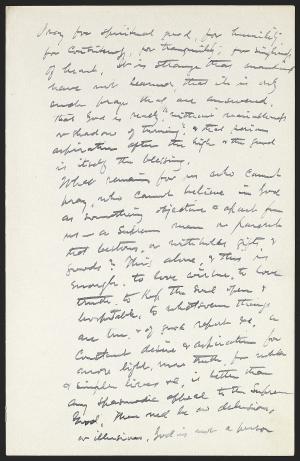 pray for spiritual good, for humility,
for contentment, for tranquility, for singleness
of heart. It is strange that mankind
have not learned that it is only
such prayers that are answered.
that God is really "without variableness
or shadow of turning" & that serious
aspiration after the high & the good
is itself the blessing.
What remains for us who cannot
pray, who cannot believe in God
as something objective & apart from
us — a Supreme man or parent
that bestows, or withholds gifts, &
goods? This alone, & this is
enough. to love virtue, to love
truth. to keep the soul open &
hospitable to whatsoever things
are true & of good report &c, a
constant desire & aspiration for
more light, more truth, for nobler
& simpler lives &c, is better than
any spasmodic appeal to the Supreme
Good. There need be no delusions,
or illusions, God is not a person